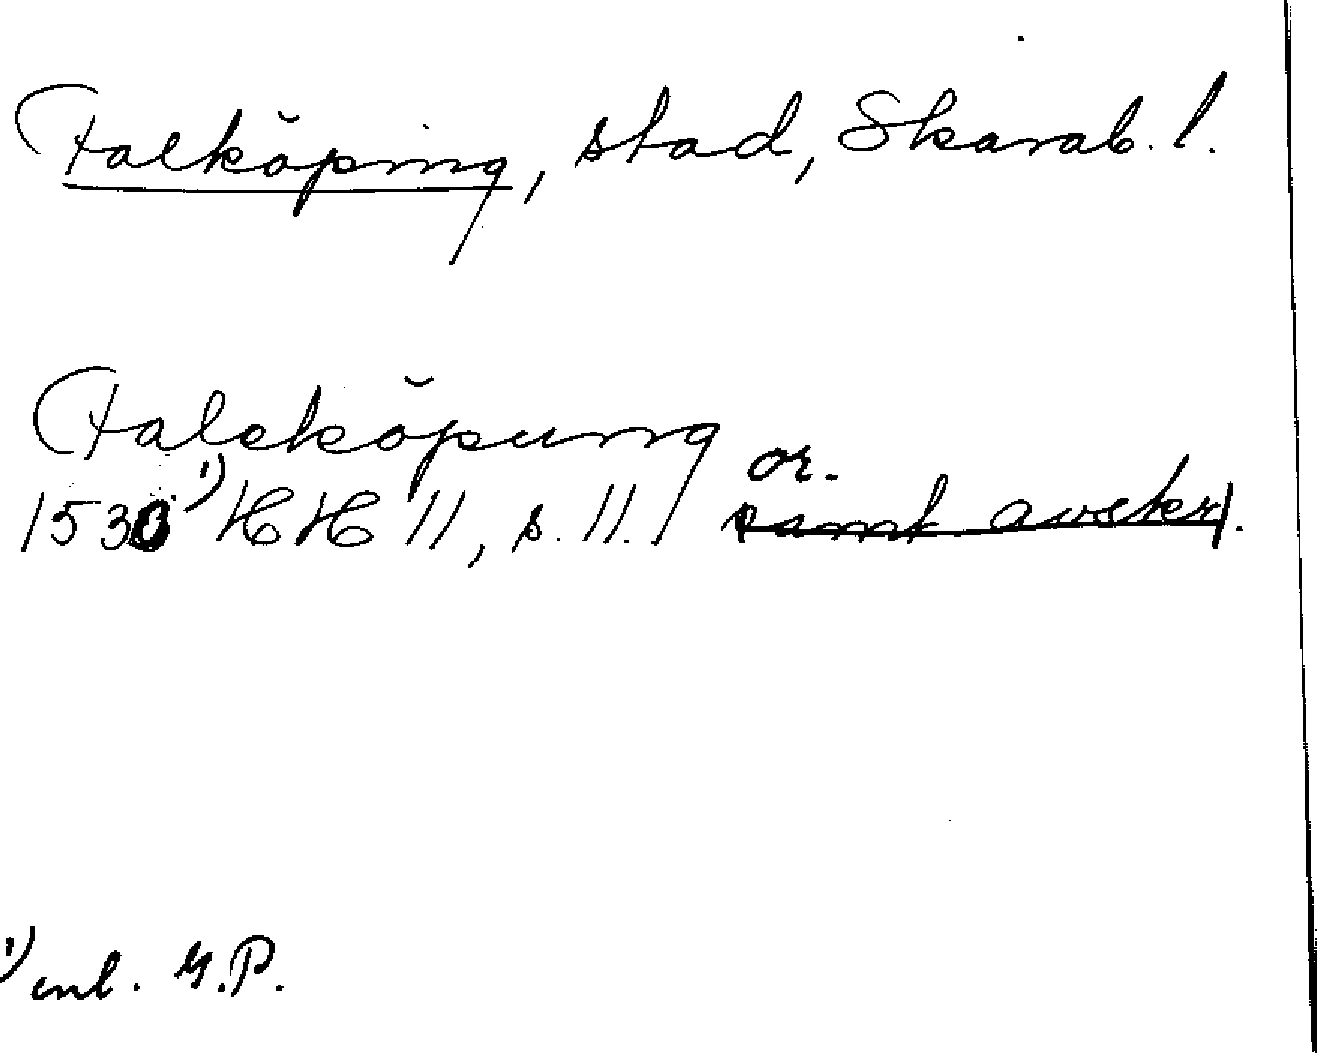 Falköping, stad, Skarab. l.
Faleköpung
or.
1530 ¹) HH 11, s. 11. samt. avskr.
¹) enl. G.P.